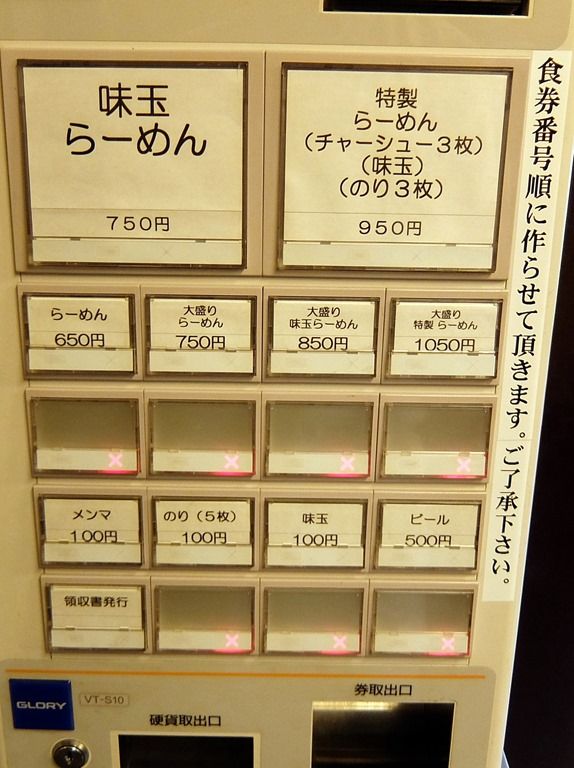 味玉
らーめん
750円
特製
らーめん
（チャーシュー３枚）
（味玉）
（のり３枚）
950円
らーめん
650円
大盛り
らーめん
750円
大盛り
味玉らーめん
850円
大盛り
特製 らーめん
1050円
メンマ
100円
のり（５枚）
100円
味玉
100円
ビール
500円
領収書発行
食券番号順に作らせて頂きます。ご了承下さい。
GLORY
VT-S10
硬貨取出口
券取出口